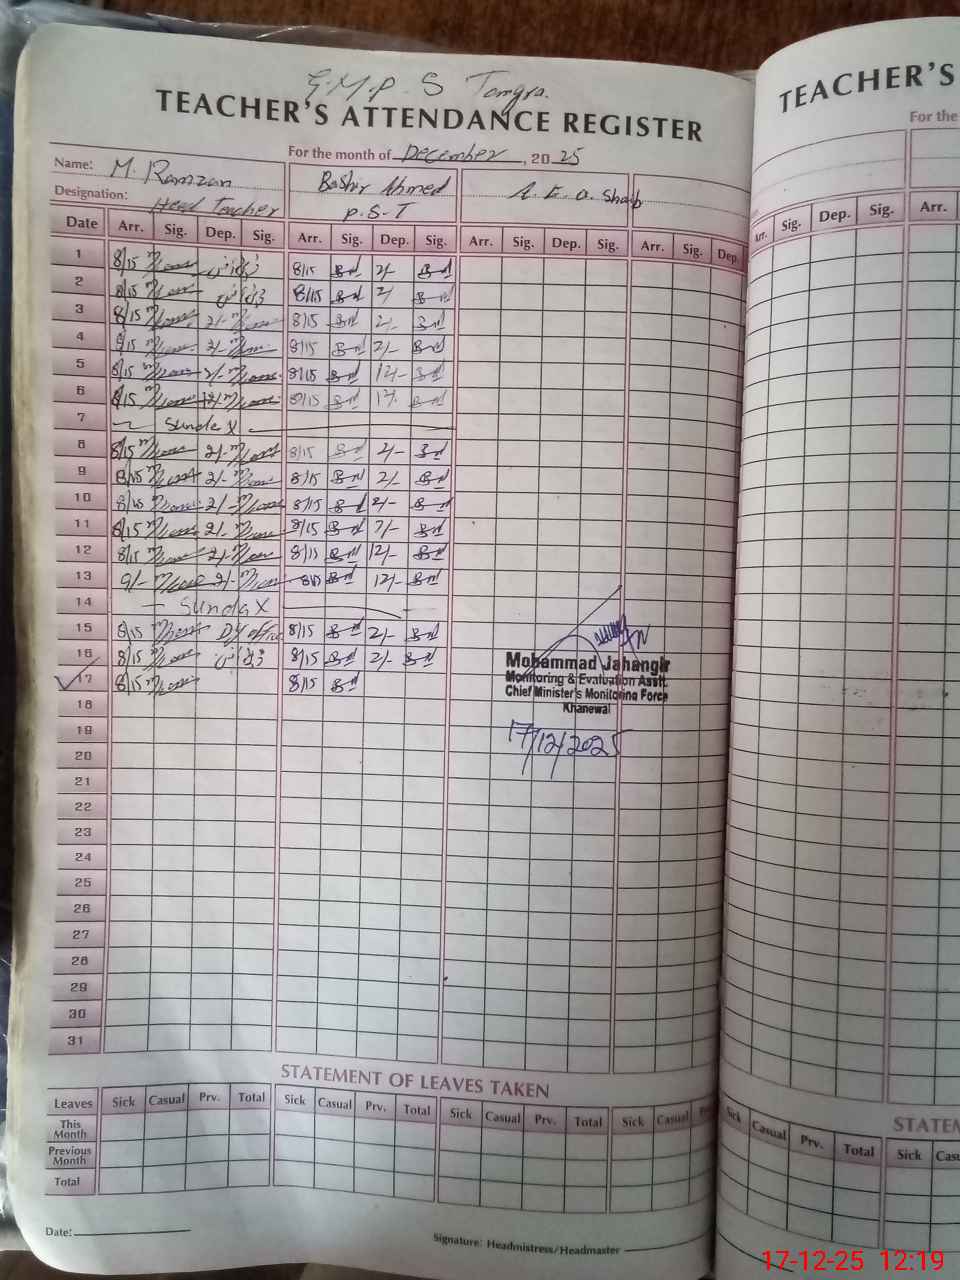 G.M.P.S Tamgra.
TEACHER'S ATTENDANCE REGISTER
For the month of December, 2025
Name: M. Ramzan Bashir Ahmed A.E.O. Shaib
Designation: Head Teacher P.S.T
Date Arr. Sig. Dep. Sig. Arr. Sig. Dep. Sig. Arr. Sig. Dep. Sig. Arr. Sig. Dep.
1 8/15 8/15 2/-
2 8/15 8/15 2/
3 8/15 2/- 8/15 2/-
4 8/15 2/- 8/15 2/-
5 8/15 2/- 8/15 12/-
6 8/15 12/- 8/15 12
7 Sunday
8 8/15 2/- 8/15 2/-
9 8/15 2/- 8/15 2/-
10 8/15 2/- 8/15 2/-
11 8/15 2/- 8/15 2/-
12 8/15 2/- 8/15 12/-
13 9/- 2/- 8/15 12/-
14 Sunday
15 8/15 Dy office 8/15 2/-
16 8/15 8/15 2/-
17 8/15 8/15
Mohammad Jahangir
Monitoring & Evaluation Asstt.
Chief Minister's Monitoring Force
Khanewal
17/12/2025
18
19
20
21
22
23
24
25
26
27
28
29
30
31
STATEMENT OF LEAVES TAKEN
Leaves Sick Casual Prv. Total Sick Casual Prv. Total Sick Casual Prv. Total Sick Casual
This Month
Previous Month
Total
Date:
Signature: Headmistress/Headmaster
TEACHER'S
For the
Arr. Sig. Dep. Sig. Arr.
STATEM
Sick Casual Prv. Total Sick Cas
17-12-25 12:19